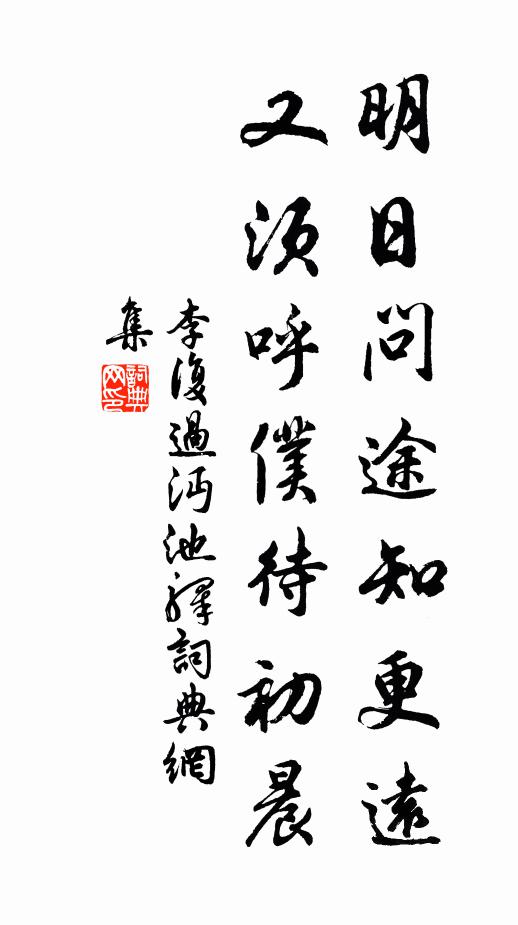 明日問途知更遠
又須呼僕待初晨
李復過沔池驛詞典網
集
詞典網印